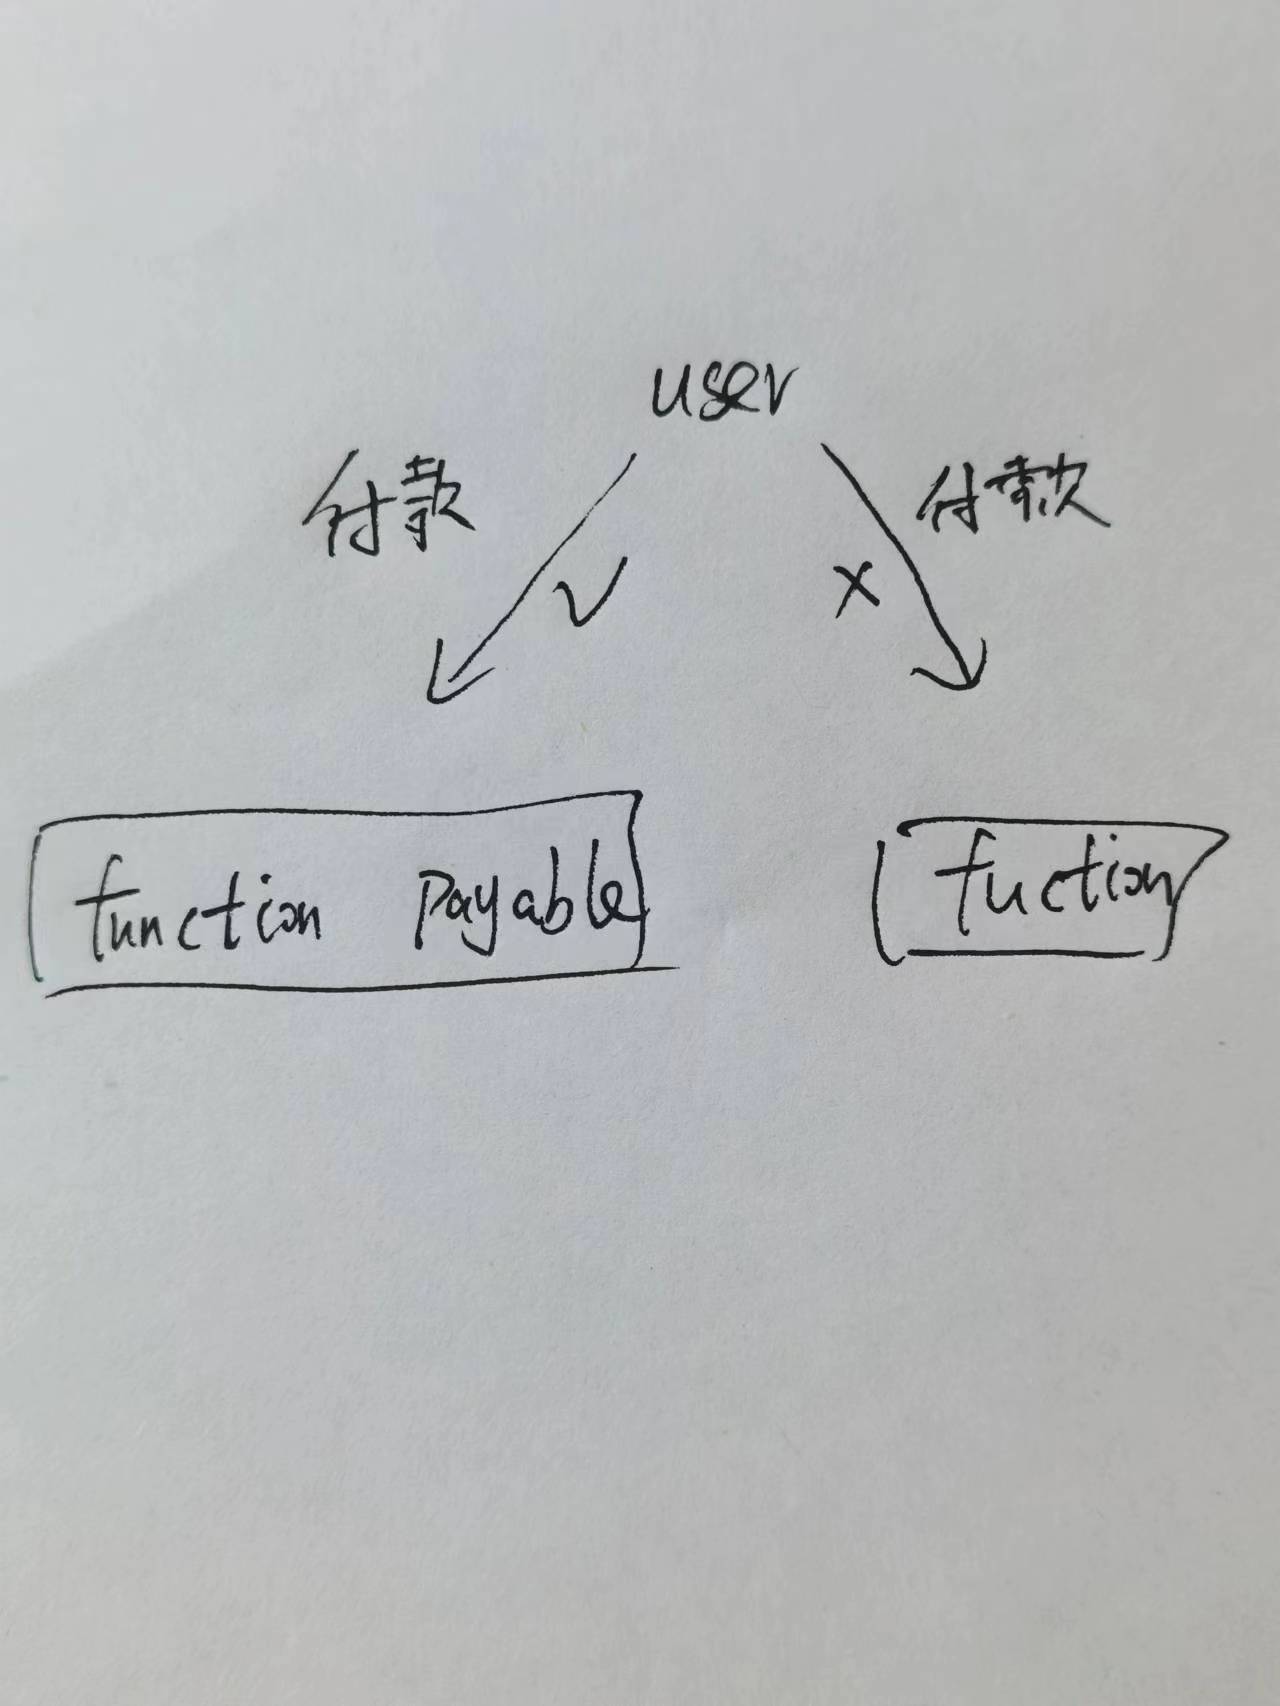 user
付款
付款
✓
×
function payable
fuction